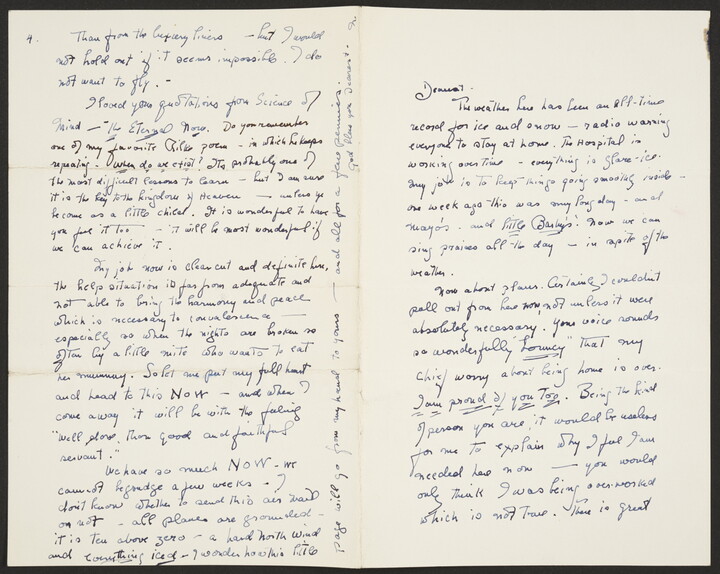 Dearest.
The weather here has been an all-time
record for ice and snow — radio warning
everyone to stay at home. The Hospital is
working overtime — everything is glare-ice.
My job is to keep things going smoothly inside —
one week ago this was my long day — and
Mayo's. and little Barby's! Now we can
sing praises all the day — in spite of the
weather.
Now about plans. Certainly I couldn't
pull out from here now, not unless it were
absolutely necessary! Your voice sounds
so wonderfully "             " that my
chief worry about being home is over.
I am proud of you Too. Being the kind
of person you are, it would be useless
for me to explain why I feel I am
needed here now — you would
only think I was being overworked
which is not true. There is great
4.
Than from the luxury liners — but I would
not hold out if it seems impossible. I do
not want to fly. —
I loved your quotations from Science of
Mind — "The Eternal Now. Do you remember
one of my favorite Rilke poem — in which he keeps
repeating. "When do we exist? It's probably one of
the most difficult lessons to learn — but I am sure
it is the key to the kingdom of Heaven — unless ye
become as a little child. It is wonderful to have
you feel it too — it will be most wonderful if
we can achieve it.
My job now is clear cut and definite here,
the help situation is far from adequate and
not able to bring the harmony and peace
which is necessary to convalescence —
especially so when the nights are broken so
often by a little mite who wants to eat
her mummy. So let me put my full heart
and head to this NOW — and when I
come away it will be with the feeling
"Well done, thou good and faithful
servant."
We have so much NOW — we
cannot begrudge a few weeks — I
don't know whether to send this air mail
or not — all planes are grounded —
it is ten above zero — a hard North wind
and everything iced — I wonder how this little
page will go from my hand to yours — and all for a few pennies.
God bless you Dearest.